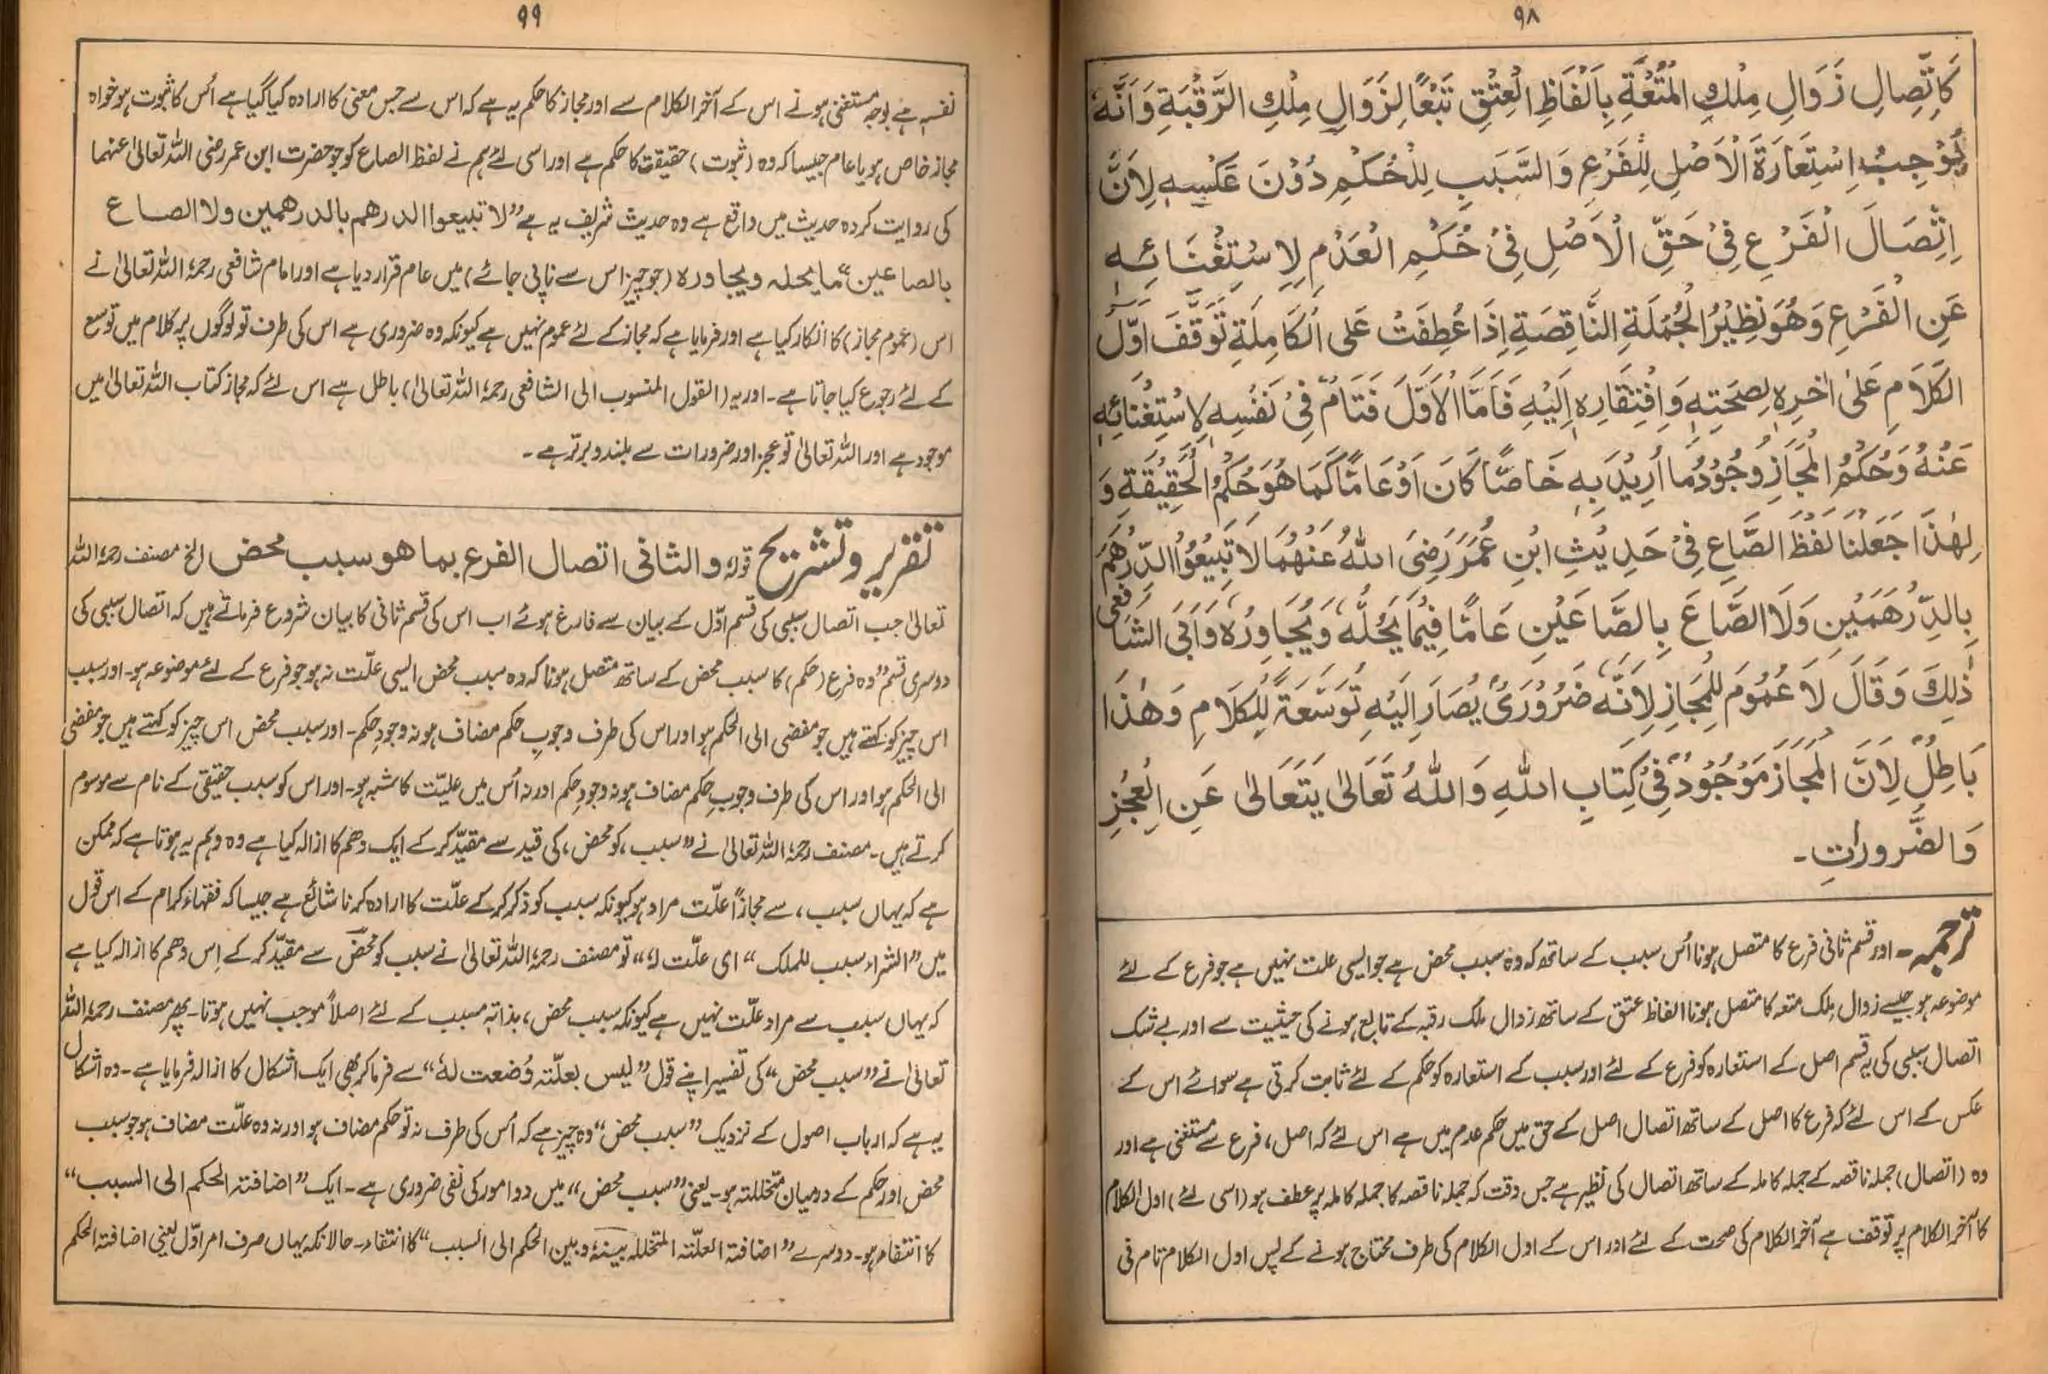 ٩٨
كَاتِّصَالِ زَوَالِ مِلْكِ الْمُتْعَةِ بِاَلْفَاظِ الْعِتْقِ تَبْعًا لِزَوَالِ مِلْكِ الرَّقَبَةِ وَاَنَّهٗ
يُوْجِبُ اِسْتِعَارَةَ الْاَصْلِ لِلْفَرْعِ وَالسَّبَبِ لِلْحُكْمِ دُوْنَ عَكْسِهٖ لِاَنَّ
اِتِّصَالَ الْفَرْعِ فِيْ حَقِّ الْاَصْلِ فِيْ حُكْمِ الْعَدَمِ لِاِسْتِغْنَائِهٖ
عَنِ الْفَرْعِ وَهُوَ نَظِيْرُ الْجُمْلَةِ النَّاقِصَةِ اِذَا عُطِفَتْ عَلَى الْكَامِلَةِ تَوَقَّفَ اَوَّلُ
الْكَلَامِ عَلٰى اٰخِرِهٖ لِصِحَّتِهٖ وَافْتِقَارِهٖ اِلَيْهِ فَاَمَّا الْاَوَّلُ فَتَامٌّ فِيْ نَفْسِهٖ لِاسْتِغْنَائِهٖ
عَنْهُ وَحُكْمُ الْمَجَازِ وُجُوْدُ مَا اُرِيْدَ بِهٖ خَاصًّا كَانَ اَوْ عَامًّا كَمَا هُوَ حُكْمُ الْحَقِيْقَةِ وَ
لِهٰذَا جَعَلْنَا لَفْظَ الصَّاعِ فِيْ حَدِيْثِ ابْنِ عُمَرَ رَضِيَ اللّٰهُ عَنْهُمَا لَا تَبِيْعُوا الدِّرْهَمَ
بِالدِّرْهَمَيْنِ وَلَا الصَّاعَ بِالصَّاعَيْنِ عَامًّا فِيْمَا يَحُلُّهٗ وَيُجَاوِرُهٗ وَاَبَى الشَّافِعِيُّ
ذٰلِكَ وَقَالَ لَا عُمُوْمَ لِلْمَجَازِ لِاَنَّهٗ ضَرُوْرِيٌّ يُصَارُ اِلَيْهِ تَوَسُّعَةً لِلْكَلَامِ وَهٰذَا
بَاطِلٌ لِاَنَّ الْمَجَازَ مَوْجُوْدٌ فِيْ كِتَابِ اللّٰهِ وَاللّٰهُ تَعَالٰى يَتَعَالٰى عَنِ الْعَجْزِ
وَالضَّرُورَاتِ۔
ترجمہ۔ اور قسم ثانی فرع کا متصل ہونا اُس سبب کے ساتھ کہ وہ سبب محض ہے جو ایسی علت نہیں ہے جو فرع کے لئے
موضوعہ ہو جیسے زوال مِلک متعہ کا متصل ہونا الفاظ عتق کے ساتھ زوال ملک رقبہ کے تابع ہونے کی حیثیت سے اور بے شک
اتصال سببی کی یہ قسم اصل کے استعارہ کو فرع کے لئے اور سبب کے استعارہ کو حکم کے لئے ثابت کرتی ہے سوائے اس کے
عکس کے اس لئے کہ فرع کا اصل کے ساتھ اتصال اصل کے حق میں حکم عدم میں ہے اس لئے کہ اصل، فرع سے مستغنی ہے اور
وہ (اتصال) جملہ ناقصہ کے جملہ کاملہ کے ساتھ اتصال کی نظیر ہے جس وقت کہ جملہ ناقصہ کا جملہ کاملہ پر عطف ہو (اسی لئے) اول الکلام
کا آخر الکلام پر توقف ہے آخر الکلام کی صحت کے لئے اور اس کے اول الکلام کی طرف محتاج ہونے کے پس اول الکلام تام فی
٩٩
نفسہٖ ہے بوجہ مستغنی ہونے اس کے آخر الکلام سے اور مجاز کا حکم یہ ہے کہ اس سے جس معنی کا ارادہ کیا گیا ہے اُس کا ثبوت ہو خواہ
مجاز خاص ہو یا عام جیسا کہ وہ (ثبوت) حقیقت کا حکم ہے اور اسی لئے ہم نے لفظ الصاع کو جو حضرت ابن عمر رضی اللہ تعالیٰ عنہما
کی روایت کردہ حدیث میں واقع ہے وہ حدیث شریف یہ ہے ”لا تبیعوا الدرھم بالدرھمین ولا الصاع
بالصاعین“ ما یحلہ ویجاورہ (جو چیز اس سے ناپی جائے) میں عام قرار دیا ہے اور امام شافعی رحمہُ اللہ تعالیٰ نے
اس (عموم مجاز) کا انکار کیا ہے اور فرمایا ہے کہ مجاز کے لئے عموم نہیں ہے کیونکہ وہ ضروری ہے اس کی طرف تو لوگوں پر کلام میں توسع
کے لئے رجوع کیا جاتا ہے۔ اور یہ (القول المنسوب الی الشافعی رحمہُ اللہ تعالیٰ) باطل ہے اس لئے کہ مجاز کتاب اللہ تعالیٰ میں
موجود ہے اور اللہ تعالیٰ تو عجز اور ضرورات سے بلند و برتر ہے۔
تقریر و تشریح قولہٗ والثانی اتصال الفرع بما ھو سبب محض الخ مصنف رحمہُ اللہ
تعالیٰ جب اتصال سببی کی قسم اوّل کے بیان سے فارغ ہوئے اب اس کی قسم ثانی کا بیان شروع فرماتے ہیں کہ اتصال سببی کی
دوسری قسم ”وہ فرع (حکم) کا سبب محض کے ساتھ متصل ہونا کہ وہ سبب محض ایسی علّت نہ ہو جو فرع کے لئے موضوعہ ہو۔ اور سبب
اس چیز کو کہتے ہیں جو مفضی الی الحکم ہو اور اس کی طرف وجوبِ حکم مضاف ہو نہ وجودِ حکم۔ اور سبب محض اس چیز کو کہتے ہیں جو مفضی
الی الحکم ہو اور اس کی طرف وجوبِ حکم مضاف ہو نہ وجودِ حکم اور نہ اُس میں علیّت کا شبہ ہو۔ اور اس کو سبب حقیقی کے نام سے موسوم
کرتے ہیں۔ مصنف رحمہُ اللہ تعالیٰ نے ”سبب، کو محض، کی قید سے مقیّد کرکے ایک وھم کا ازالہ کیا ہے وہ وہم یہ ہوتا ہے کہ ممکن
ہے کہ یہاں سبب، سے مجازاً علّت مراد ہو کیونکہ سبب کو ذکر کرکے علّت کا ارادہ کرنا شائع ہے جیسا کہ فقہاء کرام کے اس قول
میں ”الشراء سبب للملک“ ای علّت لہٗ“ تو مصنف رحمہُ اللہ تعالیٰ نے سبب کو محض سے مقیّد کرکے اِس وھم کا ازالہ کیا ہے
کہ یہاں سبب سے مراد علّت نہیں ہے کیونکہ سبب محض، بذاتہٖ مسبب کے لئے اصلاً موجب نہیں ہوتا۔ پھر مصنف رحمہُ اللہ
تعالیٰ نے ”سبب محض“ کی تفسیر اپنے قول ”لیس بعلّتہ وُضعت لہٗ“ سے فرما کر بھی ایک اشکال کا ازالہ فرمایا ہے۔ وہ اشکال
یہ ہے کہ ارباب اصول کے نزدیک ”سبب محض“ وہ چیز ہے کہ اُس کی طرف نہ تو حکم مضاف ہو اور نہ وہ علّت مضاف ہو جو سبب
محض اور حکم کے درمیان متخللتہ ہو۔ یعنی ”سبب محض“ میں دو امور کی نفی ضروری ہے۔ ایک ”اضافتہ الحکم الی السبب“
کا انتفاء ہو۔ دوسرے ”اضافتہ العلّتہ المتخللہ بینہٗ وبین الحکم الی السبب“ کا انتفاء۔ حالانکہ یہاں صرف امر اوّل یعنی اضافتہ الحکم